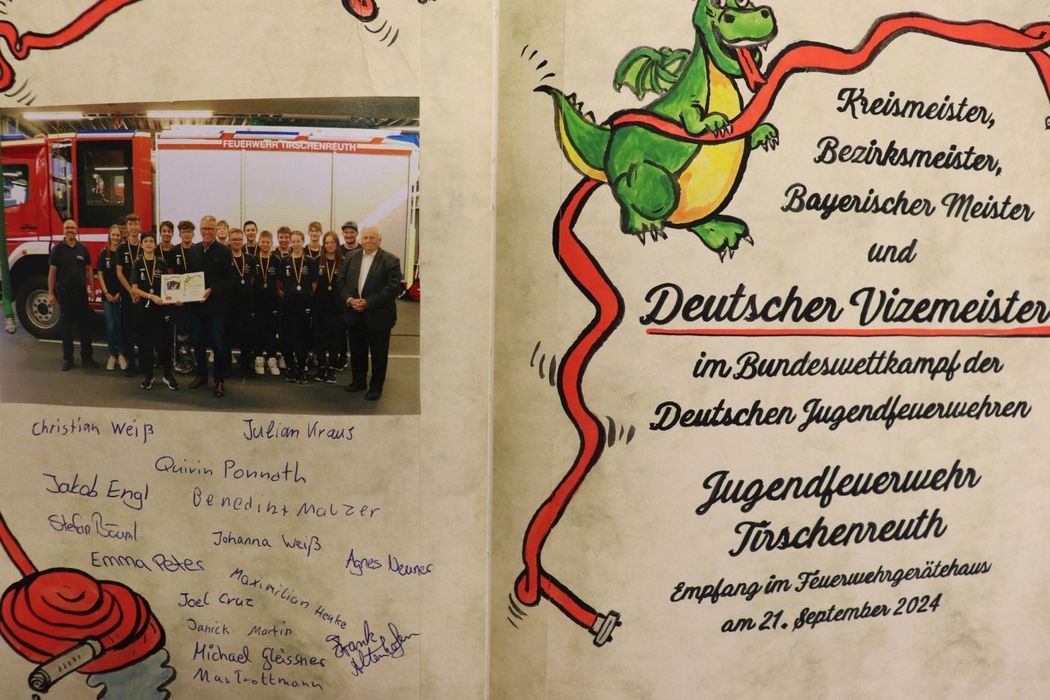 FEUERWEHR TIRSCHENREUTH
Christian Weiß
Julian Kraus
Quirin Ponnath
Jakob Engl
Benedikt Malzer
Stefan Bäuml
Johanna Weiß
Emma Peter
Agnes Neuner
Maximilian Henke
Joel Cruz
Janick Martin
Frank Altenhofen
Michael Gleissner
Max Trottmann
Kreismeister,
Bezirksmeister,
Bayerischer Meister
und
Deutscher Vizemeister
im Bundeswettkampf der
Deutschen Jugendfeuerwehren
Jugendfeuerwehr
Tirschenreuth
Empfang im Feuerwehrgerätehaus
am 21. September 2024